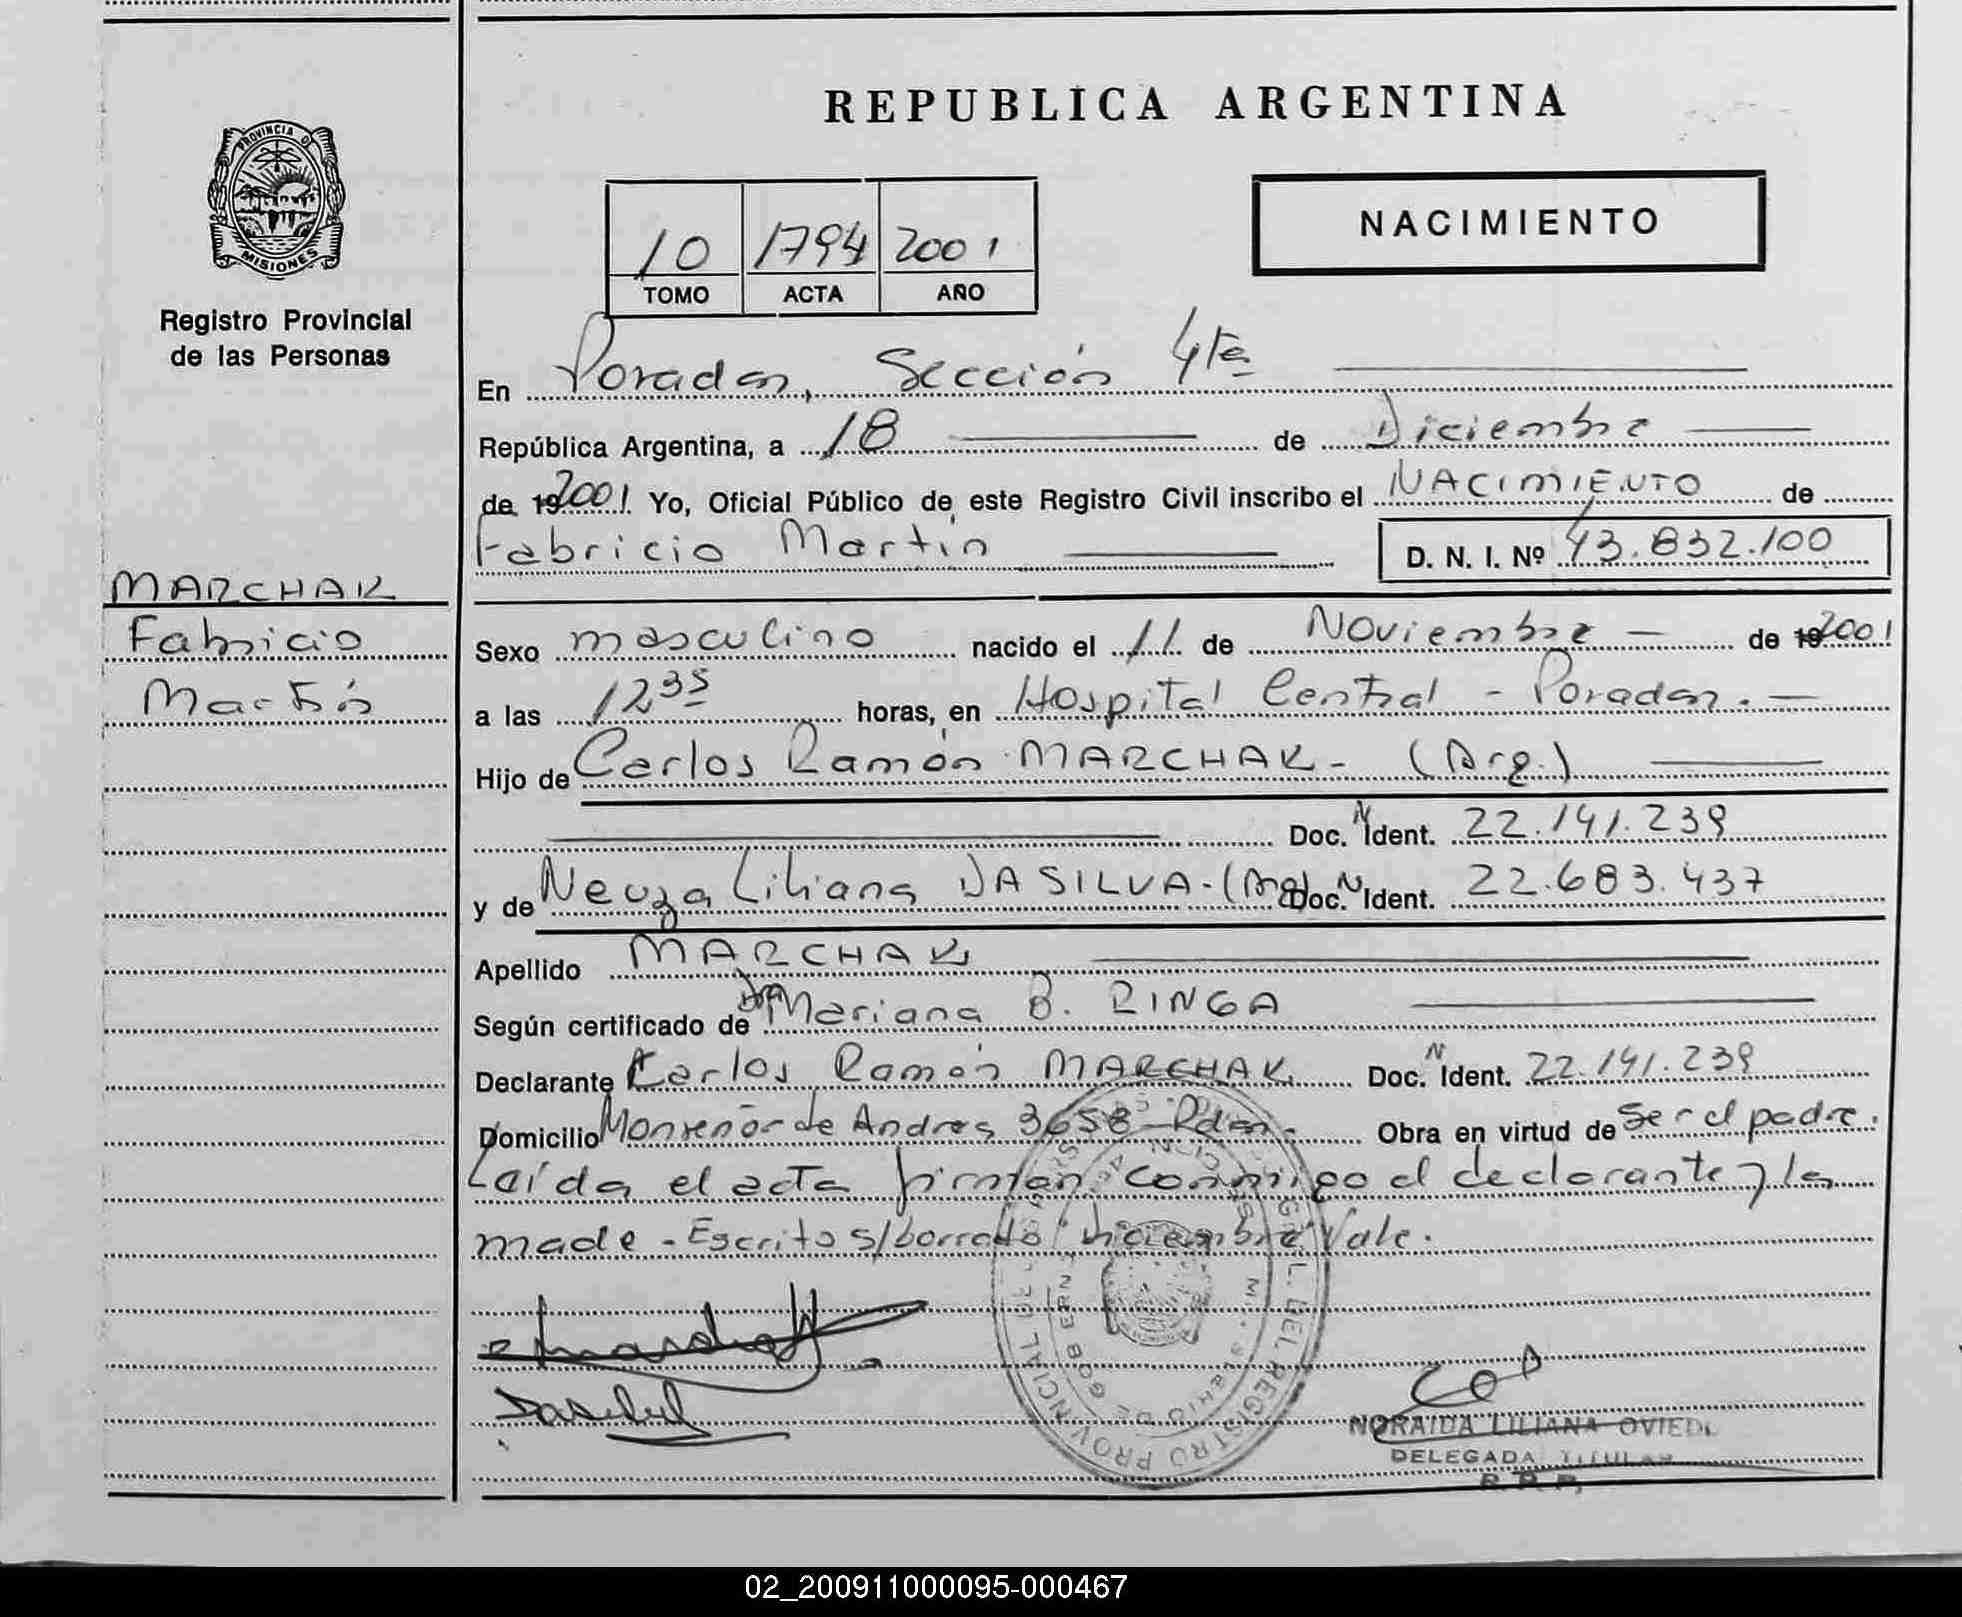 REPUBLICA ARGENTINA
PROVINCIA DE MISIONES
Registro Provincial
de las Personas
10 1794 2001
TOMO ACTA AÑO
NACIMIENTO
En Posadas, Sección 4ta
República Argentina, a 18 de Diciembre
de 192001. Yo, Oficial Público de este Registro Civil inscribo el NACIMIENTO de
Fabricio Martín D. N. I. Nº 43.832.100
MARCHAK
Fabricio
Martín
Sexo masculino nacido el 11 de Noviembre de 192001
a las 12 35 horas, en Hospital Central - Posadas.
Hijo de Carlos Ramón MARCHAK - (Arg.)
Doc. N Ident. 22.141.239
y de Neuza Liliana DASILVA - (Arg) Doc. N Ident. 22.683.437
Apellido MARCHAK
Según certificado de Mariana B. RINGA
Declarante Carlos Ramón MARCHAK Doc. N Ident. 22.141.239
Domicilio Monseñor de Andres 3658 - Pdas. Obra en virtud de ser el padre.
Leída el acta firman conmigo el declarante y la
made - Escrito s/borrado: Diciembre Vale.
Dasilva
NORAIDA LILIANA OVIEDO
DELEGADA TITULAR
R. P. P.
02_200911000095-000467